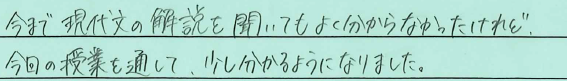 今まで現代文の解説を聞いてもよく分からなかったけれど、
今回の授業を通して、少し分かるようになりました。